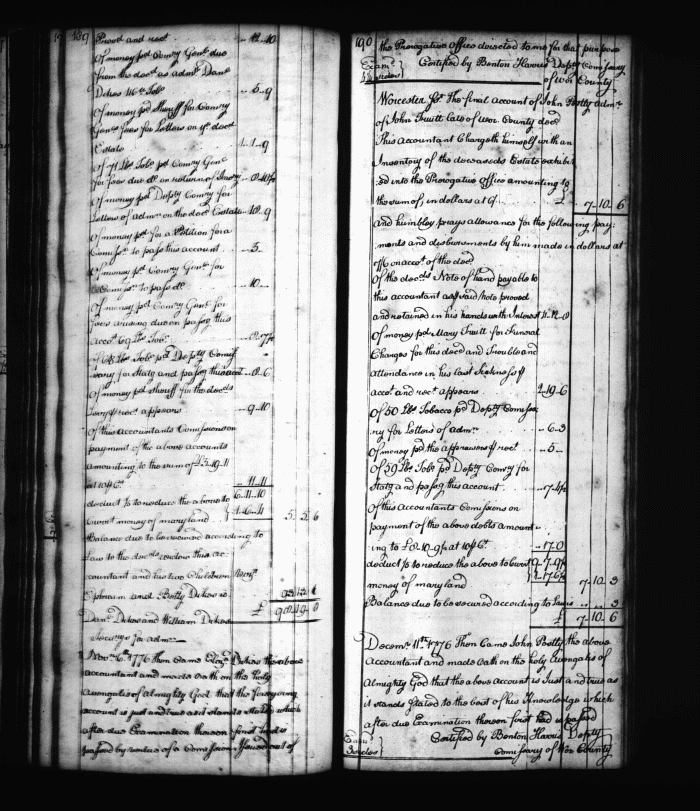 189
Proved and rect. .. 12. 10
Of money pd. Comry Genl. due
from the decd. as admr. Danl.
Dckes 116 lb. Tobo. .. 5. 9
Of money pd. Sheriff for Comry
Genl. fees for Letters on ye. decd.
Estate 1. 1. 9
Of 71 lbs Tobo. pd Comry Genl.
for fees due on return of
Of money pd. Depty Comry for
Letters of admn. on the decds Estate 10. 9
Of money pd. for a Petition for a
Comisn. to pass this account .. 3. ..
Of money pd. Comry Genl. for
Comisn. to pass .. 10 ..
Of money pd. Comry Genl. for
fees arising due on passg this
acct. 69 lbs Tobo.
of 68 lbs Tobo pd. Depty Comis
sary for Statg and passg this acct
Of money pd. Sheriff for the decds
rect. appears .. 9. 10
Of this Accountants Comissions on
payment of the above accounts
amounting to the sum of £5.19.11
at 10 ₱ Ct. .. 11. 11
deduct ⅕ to reduce the above to 6. 11. 10
Current money of maryland 1. 6. 4 5. 5. 6
Balance due to be secured according to
Law to the decds. widow this ac-
countant and his two Children
Ephraim and Betty Dckes is
£
Danl. Dckes and William Dckes
Securitys for admr.
Novr. 6th. 1776 Then Came Dckes the above
accountant and made Oath on the holy
Evangelis of almighty God that the foregoing
account is just and true as it stands stated which
after due Examination thereon first had is
passed by virtue of a Comission Issued out of
190
the Prerogative Office directed to me for that purpose
Examd. Certified by Benton Harris Depty Comissary
of Wor. County
Worcester Sst. The final account of John Postly admr.
of John Truitt late of Wor. County decd.
This Accountant Chargeth himself with an
Inventory of the deceaseds Estate exhibit
-ed into the Prerogative Office amounting to
the sum of in dollars at 6/. £ 7. 10. 6
And humbley prays allowance for the following pay-
ments and disbursments by him made in dollars at
6/ on acct. of the decd.
Of the decds. Note of hand payable to
this accountant as ₱ said note proved
and retained in his hands with Interest 4. 12. 0
Of money pd. Mary Truitt for Funeral
Charges for this decd and Trouble and
Attendance in his last Sickness ₱
acct. and rect. appears 2. 19. 6
Of 50 lbs Tobacco pd Depty Comissa
ry for Letters of admn. .. 6. 3
Of money pd. the appraisers ₱ rect. .. 5 ..
Of 59 lbs Tobo. pd Depty Comry for
Statg and passg this account .. 7. 4½
Of this Accountants Comissions on
payment of the above debts amount
ing to £8. 10. 9½ at 10 ₱ Ct. .. 17. 0
deduct ⅕ to reduce the above to Current 9. 7. 9½
money of maryland 1. 17. 6½ 7. 10. 3
Balance due to be secured according to Law is .. .. 3
£ 7. 10. 6
Decemr. 11th. 1776 Then Came John Postly the above
Accountant and made Oath on the holy Evangelis of
Almighty God that the above Account is Just and true as
it stands Stated to the best of his Knowledge which
after due Examination thereon first had is passed
Certified by Benton Harris Depty
Comissary of Wor County
Examd.